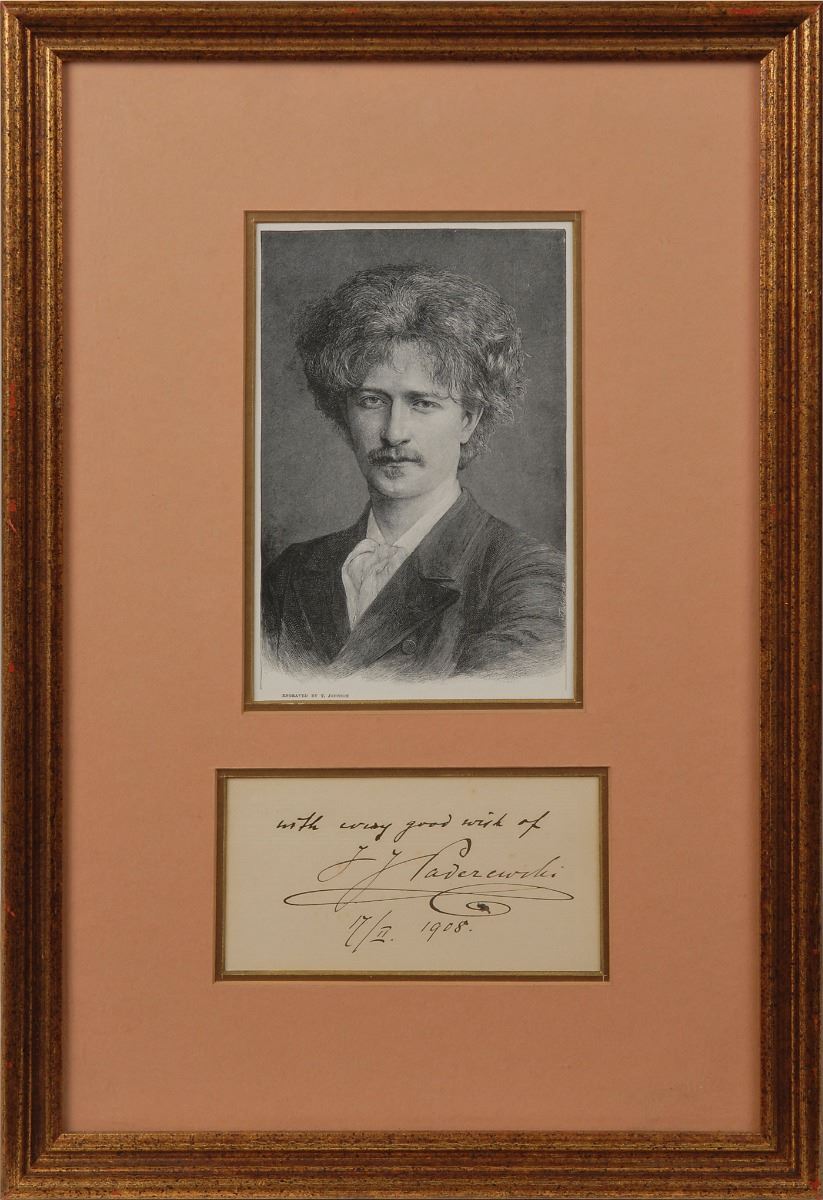 ENGRAVED BY T. JOHNSON
with every good wish of
I J Paderewski
17/II. 1908.